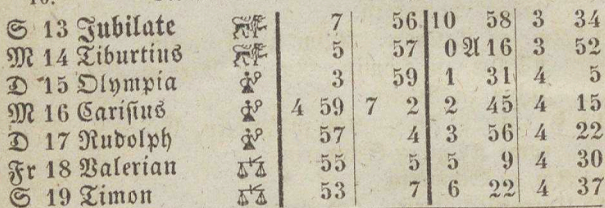 S 13 Jubilate 7 56 10 58 3 34
M 14 Tiburtius 5 57 0 A 16 3 52
D 15 Olympia 3 59 1 31 4 5
M 16 Carisius 4 59 7 2 2 45 4 15
D 17 Rudolph 57 4 3 56 4 22
Fr 18 Valerian 55 5 5 9 4 30
S 19 Timon 53 7 6 22 4 37